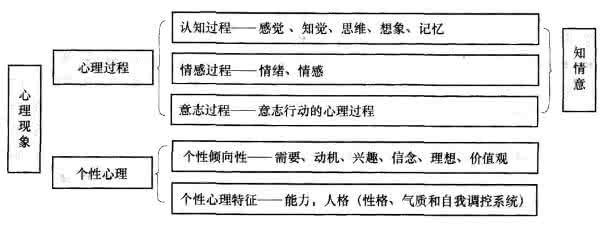 心理现象
心理过程
认知过程——感觉、知觉、思维、想象、记忆
情感过程——情绪、情感
意志过程——意志行动的心理过程
知情意
个性心理
个性倾向性——需要、动机、兴趣、信念、理想、价值观
个性心理特征——能力，人格（性格、气质和自我调控系统）